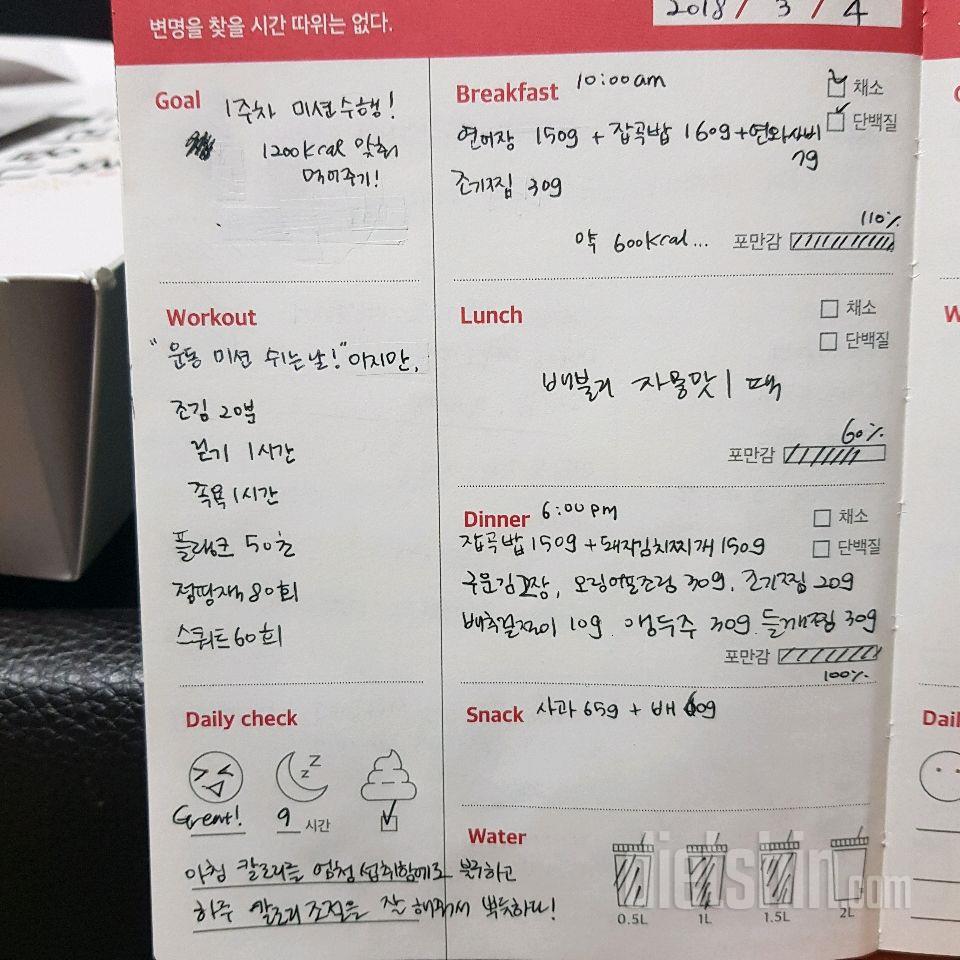 변명을 찾을 시간 따위는 없다.
2018 / 3 / 4
Goal
1주차 미션수행!
1200kcal 맞춰
먹어주기!
Workout
"운동 미션 쉬는날!" 이지만,
조깅 20분
걷기 1시간
족욕 1시간
플랭크 50초
점핑잭 80회
스쿼트 60회
Daily check
Great!
9 시간
아침 칼로리를 엄청 섭취함에도 불구하고
하루 칼로리 조절을 잘 해줘서 뿌듯하다!
Breakfast 10:00am
채소
단백질
연어장 150g + 잡곡밥 160g + 연와사비
7g
조기찜 30g
110%
약 600kcal... 포만감
Lunch
채소
단백질
배불러 자몽맛 1 팩
60%
포만감
Dinner 6:00pm
채소
단백질
잡곡밥 150g + 돼지김치찌개 150g
구운김 2장, 오징어포조림 30g, 조기찜 20g
배추겉절이 10g 30g 들깨찜 30g
포만감
100%
Snack 사과 65g + 배 60g
Water
0.5L
1L
1.5L
2L
dietshin.com
Dail